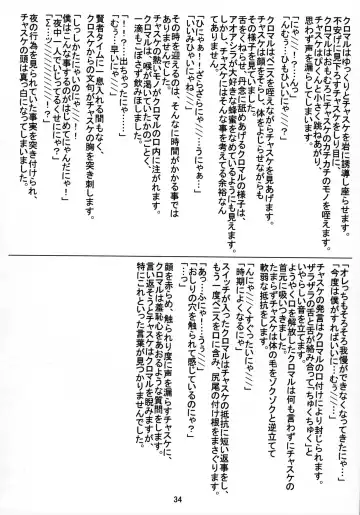 クロマルはゆっくりとチャスケを岩に誘導し座らせます。
不敵に見下ろすチャスケを見上げながら
クロマルはおもむろにチャスケのカチカチのモノを咥えます。
チャスケはびくんと小さく跳ねあがり、
思わず声を漏らしてしまいます。
「にゃっ…!」
「んむっ…ひもひいいにゃ?」
クロマルはペニスを咥えながらチャスケを見上げます。
チャスケは顔を背け、体をよじらせながらも
その様子を見下します。
舌をくねらせ、丹念に舐めあげるクロマルの様子は、
アオアシラが大好きな蜂蜜をなめているようにも見えます。
しかし、チャスケにはそんな事を考えてる余裕なんて
ありません。
「ひにゃっ!…ざらざらにゃ…うにゃあ…」
「いいみひゃいにゃね…」
その時を迎えるのは、そんなに時間がかかる事では
ありませんでした。
チャスケの熱いモノがクロマルの口内に注がれます。
クロマルは、喉が渇いていたかのごとく、
一滴もこぼさず飲みほしました。
「!!…?…出ちゃったにゃ…」
「むーにゃ…」
賢者タイムに一息入れる間もなく、
クロスケからの矢句がチャスケの胸を突き刺します。
「しっしかたにゃいのにゃ…!」
「僕はこんな事するのがはじめてにゃんにゃ!」
「夜中一人でいじってるせにゃ?」
夜の行為を見られていた事実を突き付けられ、
チャスケの頭は真っ白になってしまいました。
「オレっちもそろそろ我慢ができなくなってきたにゃ…」
「今度は僕がすればいいに…むちゅ…」
チャスケの発言はクロマルの口付けにより封じられます。
ザラザラの舌と舌が絡み合って「ちゅくちゅく」と
いやらしい音を立てます。
ようやく口を解放したクロマルは何も言わずにチャスケの
首元に吸いきます。
たまらずチャスケは体の毛をゾクゾクと逆立てて
軟弱な抵抗をします。
「んにゃ…くすぐったいにゃ…」
「時期によくなるにゃ」
スイッチが入ったクロマルはチャスケの抵抗に短い返事をし、
もう一度ペニスを口に含み、尻尾の付け根をまさぐります。
「あっ…ふにゃ…うぅ…」
「おしりの穴を触られて感じているのにゃ?」
「…っ」
頭を赤らめ、触られり度に声を漏らすチャスケに、
クロマルは羞恥心をあおるような質問をします。
言い返そうとチャスケはクロマルを睨みますが、
特にこれといった言葉が見つかりませんでした。
34